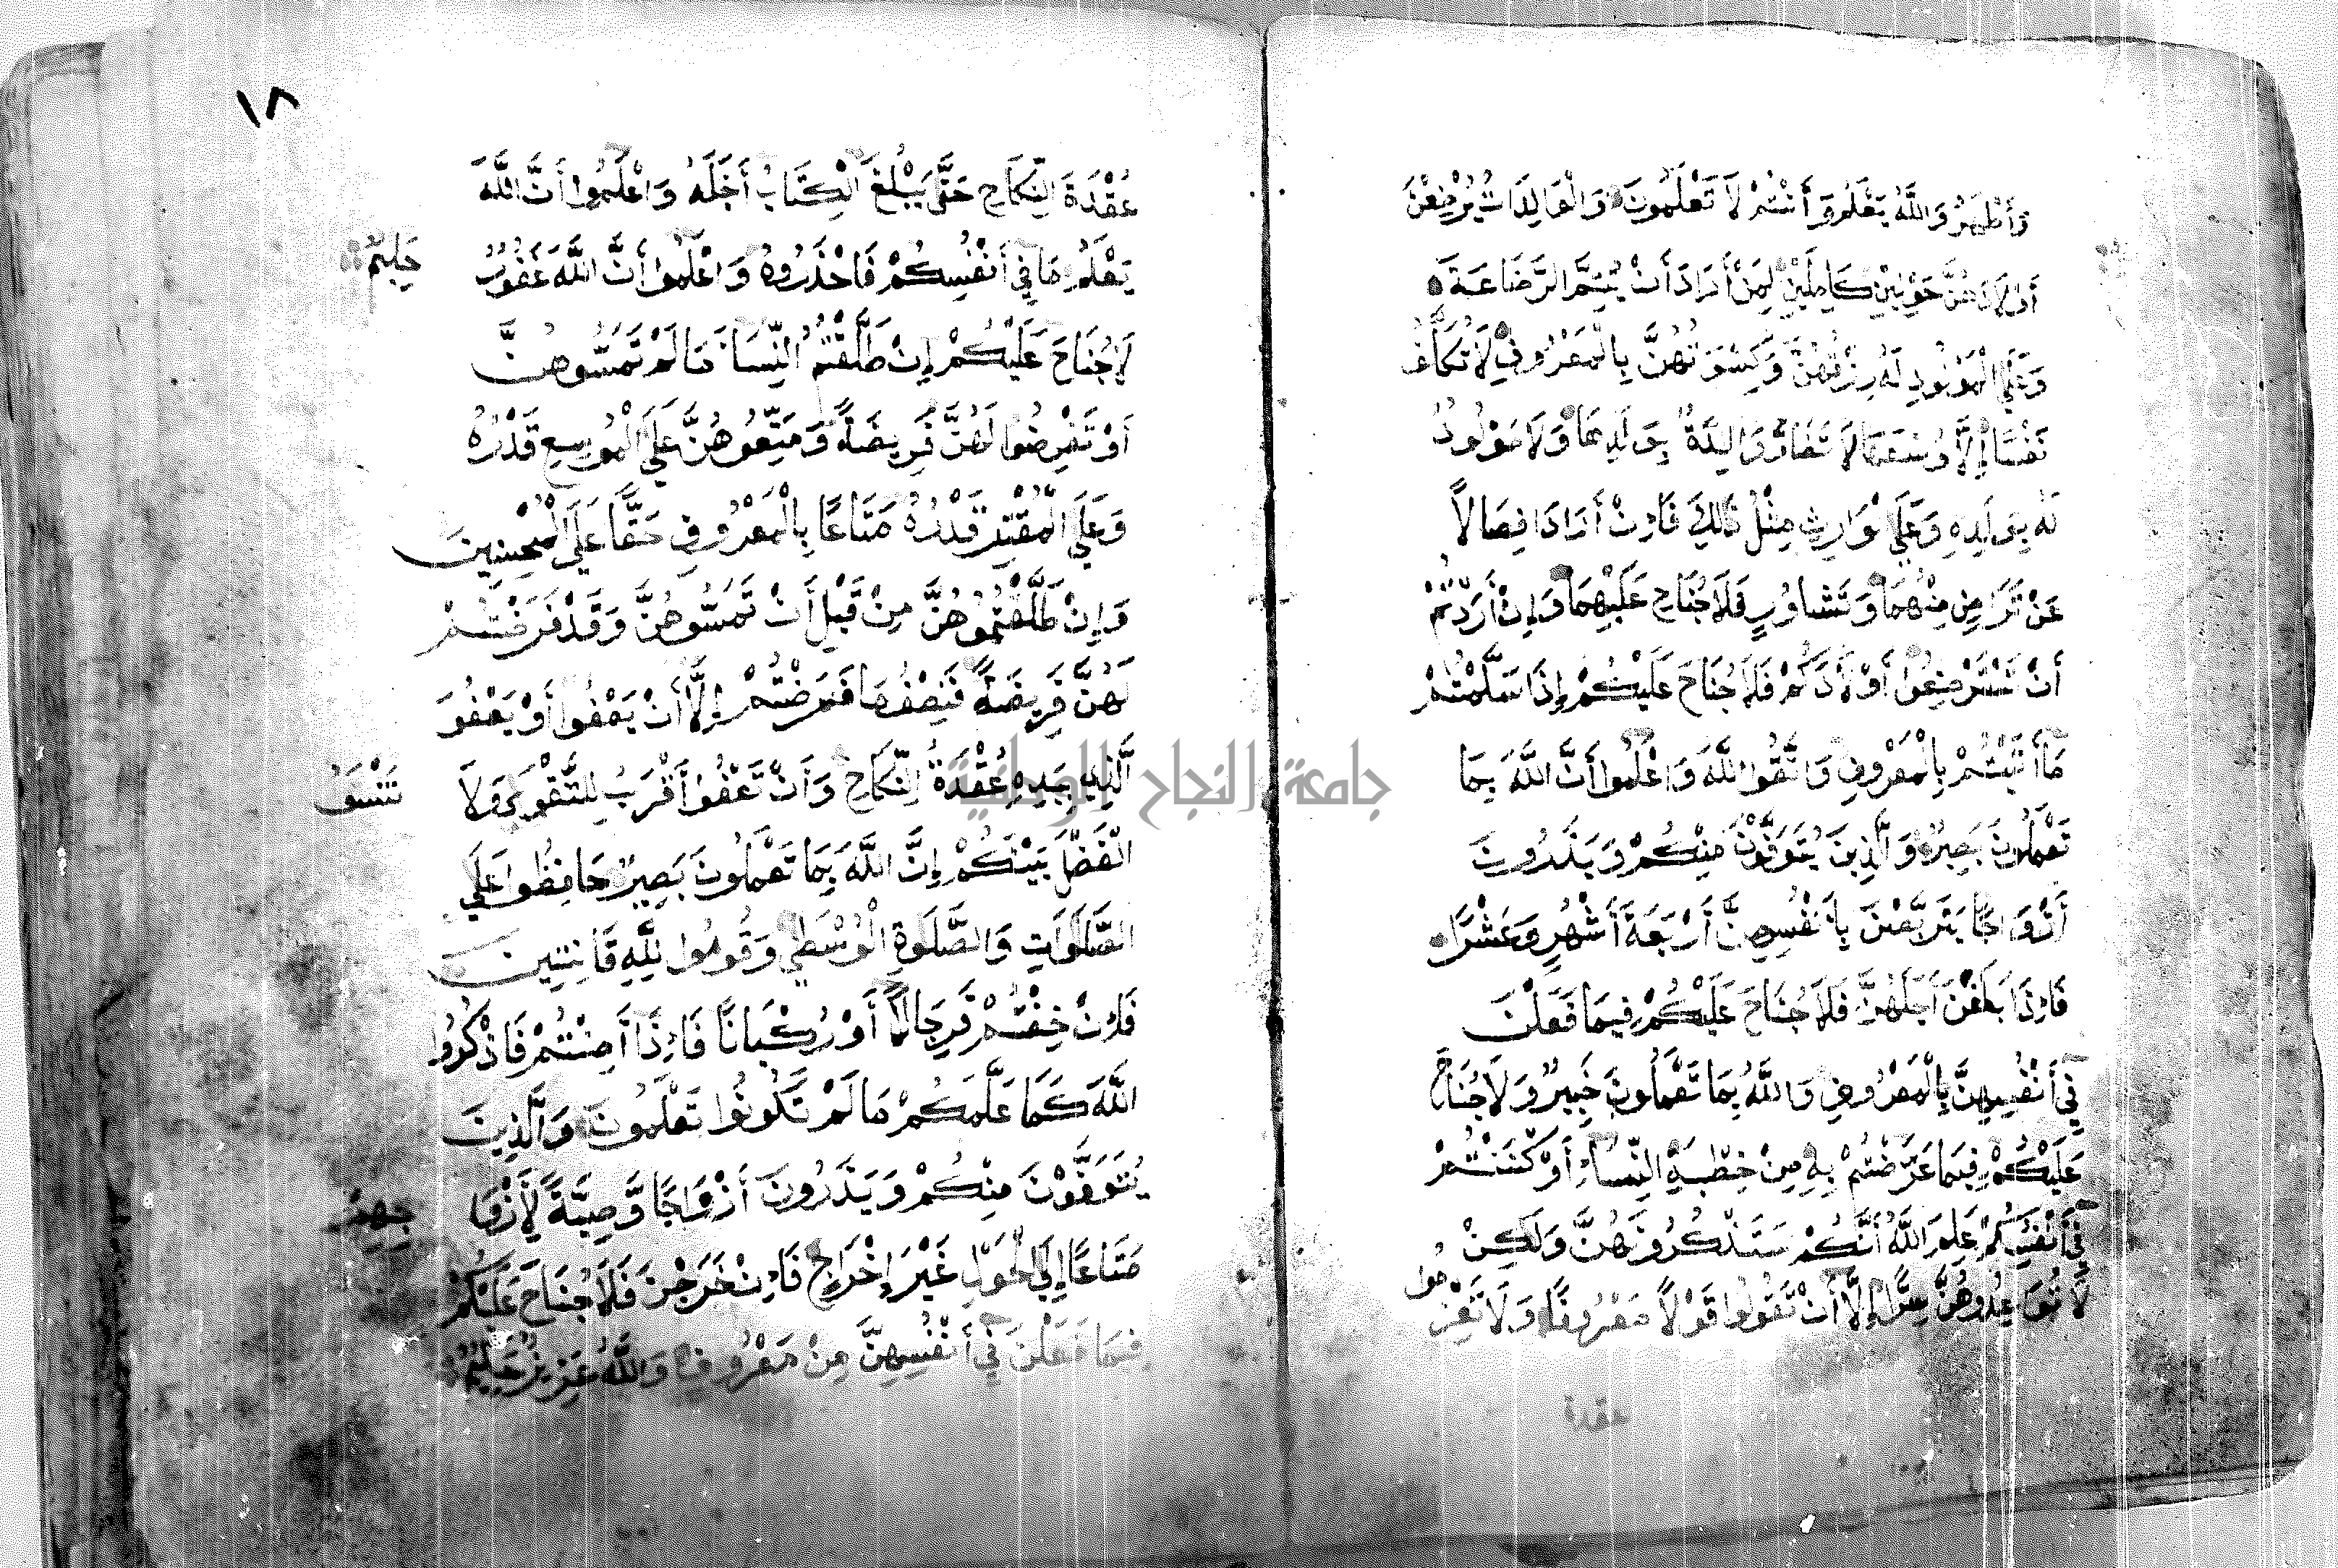 وَأَطْهَرُ وَاللَّهُ يَعْلَمُ وَأَنْتُمْ لَا تَعْلَمُونَ وَالْوَالِدَاتُ يُرْضِعْنَ
أَوْلَادَهُنَّ حَوْلَيْنِ كَامِلَيْنِ لِمَنْ أَرَادَ أَنْ يُتِمَّ الرَّضَاعَةَ
وَعَلَى الْمَوْلُودِ لَهُ رِزْقُهُنَّ وَكِسْوَتُهُنَّ بِالْمَعْرُوفِ لَا تُكَلَّفُ
نَفْسٌ إِلَّا وُسْعَهَا لَا تُضَارَّ وَالِدَةٌ بِوَلَدِهَا وَلَا مَوْلُودٌ
لَهُ بِوَلَدِهِ وَعَلَى الْوَارِثِ مِثْلُ ذَلِكَ فَإِنْ أَرَادَا فِصَالًا
عَنْ تَرَاضٍ مِنْهُمَا وَتَشَاوُرٍ فَلَا جُنَاحَ عَلَيْهِمَا وَإِنْ أَرَدْتُمْ
أَنْ تَسْتَرْضِعُوا أَوْلَادَكُمْ فَلَا جُنَاحَ عَلَيْكُمْ إِذَا سَلَّمْتُمْ
مَا أَتَيْتُمْ بِالْمَعْرُوفِ وَاتَّقُوا اللَّهَ وَاعْلَمُوا أَنَّ اللَّهَ بِمَا
تَعْمَلُونَ بَصِيرٌ وَالَّذِينَ يُتَوَفَّوْنَ مِنْكُمْ وَيَذَرُونَ
أَزْوَاجًا يَتَرَبَّصْنَ بِأَنْفُسِهِنَّ أَرْبَعَةَ أَشْهُرٍ وَعَشْرًا
فَإِذَا بَلَغْنَ أَجَلَهُنَّ فَلَا جُنَاحَ عَلَيْكُمْ فِيمَا فَعَلْنَ
فِي أَنْفُسِهِنَّ بِالْمَعْرُوفِ وَاللَّهُ بِمَا تَعْمَلُونَ خَبِيرٌ وَلَا جُنَاحَ
عَلَيْكُمْ فِيمَا عَرَّضْتُمْ بِهِ مِنْ خِطْبَةِ النِّسَاءِ أَوْ أَكْنَنْتُمْ
فِي أَنْفُسِكُمْ عَلِمَ اللَّهُ أَنَّكُمْ سَتَذْكُرُونَهُنَّ وَلَكِنْ
لَا تُوَاعِدُوهُنَّ سِرًّا إِلَّا أَنْ تَقُولُوا قَوْلًا مَعْرُوفًا وَلَا تَعْزِمُوا
عقدة
١٨
عُقْدَةَ النِّكَاحِ حَتَّى يَبْلُغَ الْكِتَابُ أَجَلَهُ وَاعْلَمُوا أَنَّ اللَّهَ
يَعْلَمُ مَا فِي أَنْفُسِكُمْ فَاحْذَرُوهُ وَاعْلَمُوا أَنَّ اللَّهَ غَفُورٌ حَلِيمٌ
لَا جُنَاحَ عَلَيْكُمْ إِنْ طَلَّقْتُمُ النِّسَاءَ مَا لَمْ تَمَسُّوهُنَّ
أَوْ تَفْرِضُوا لَهُنَّ فَرِيضَةً وَمَتِّعُوهُنَّ عَلَى الْمُوسِعِ قَدْرُهُ
وَعَلَى الْمُقْتِرِ قَدْرُهُ مَتَاعًا بِالْمَعْرُوفِ حَقًّا عَلَى الْمُحْسِنِينَ
وَإِنْ طَلَّقْتُمُوهُنَّ مِنْ قَبْلِ أَنْ تَمَسُّوهُنَّ وَقَدْ فَرَضْتُمْ
لَهُنَّ فَرِيضَةً فَنِصْفُ مَا فَرَضْتُمْ إِلَّا أَنْ يَعْفُوا أَوْ يَعْفُوَ
الَّذِي بِيَدِهِ عُقْدَةُ النِّكَاحِ وَأَنْ تَعْفُوا أَقْرَبُ لِلتَّقْوَى وَلَا تَنْسَوُا
الْفَضْلَ بَيْنَكُمْ إِنَّ اللَّهَ بِمَا تَعْمَلُونَ بَصِيرٌ حَافِظُوا عَلَى
الصَّلَوَاتِ وَالصَّلَوةِ الْوُسْطَى وَقُومُوا لِلَّهِ قَانِتِينَ
فَإِنْ خِفْتُمْ فَرِجَالًا أَوْ رُكْبَانًا فَإِذَا أَمِنْتُمْ فَاذْكُرُوا
اللَّهَ كَمَا عَلَّمَكُمْ مَا لَمْ تَكُونُوا تَعْلَمُونَ وَالَّذِينَ
يُتَوَفَّوْنَ مِنْكُمْ وَيَذَرُونَ أَزْوَاجًا وَصِيَّةً لِأَزْوَاجِهِمْ
مَتَاعًا إِلَى الْحَوْلِ غَيْرَ إِخْرَاجٍ فَإِنْ خَرَجْنَ فَلَا جُنَاحَ عَلَيْكُمْ
فِيمَا فَعَلْنَ فِي أَنْفُسِهِنَّ مِنْ مَعْرُوفٍ وَاللَّهُ عَزِيزٌ حَكِيمٌ
جامعة النجاح الوطنية